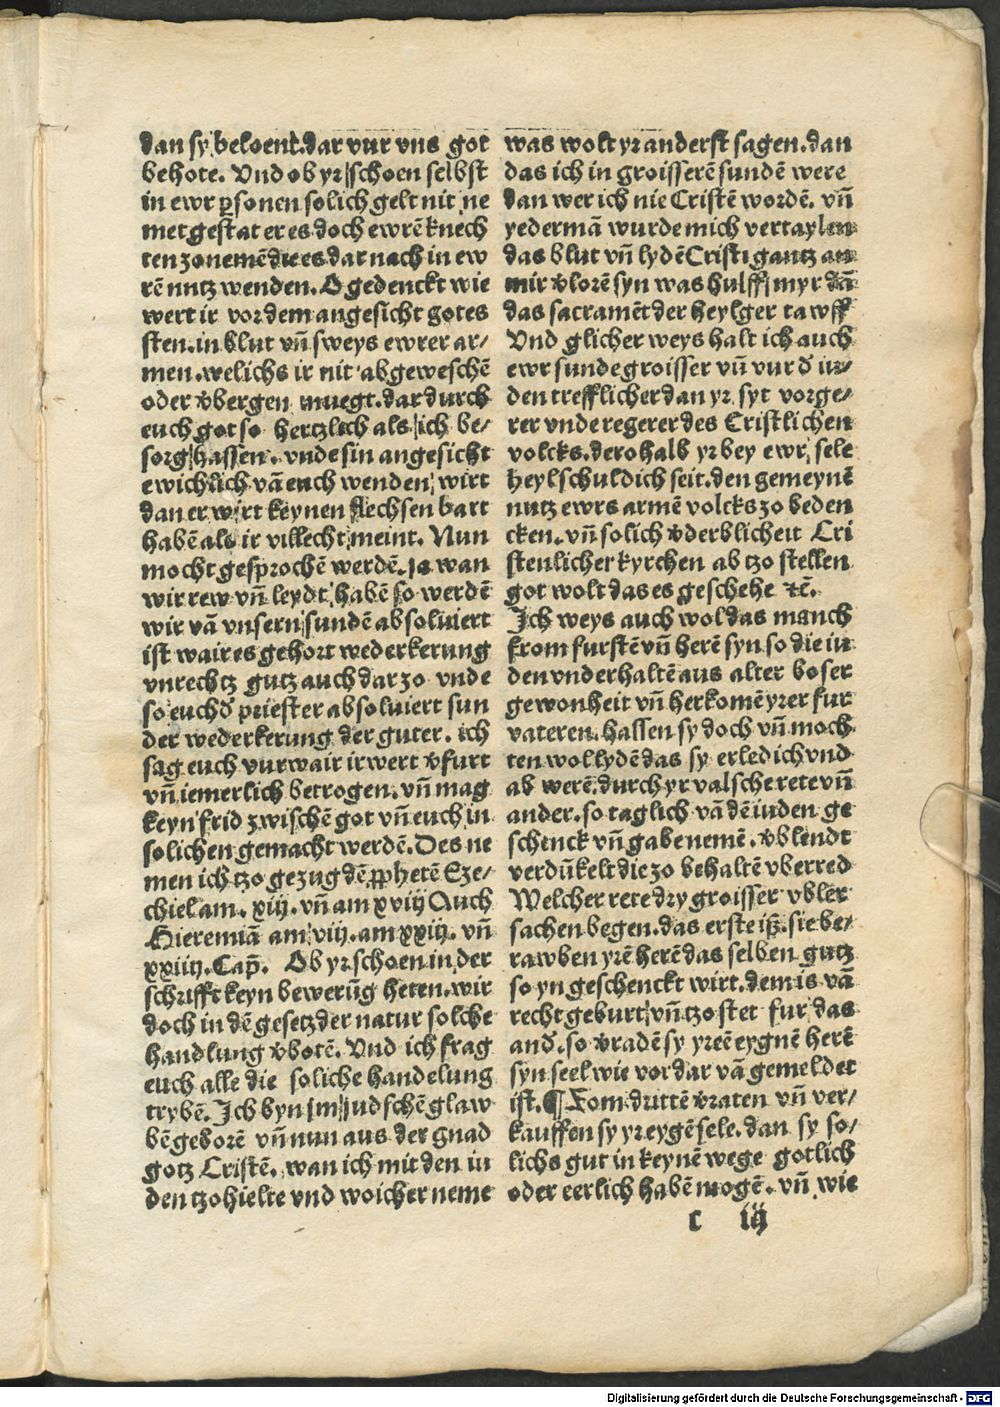 dan sy beloent. dar vur vns got
behote. Vnd ob yr schoen selbst
in ewr ꝑsonen solich gelt nit ne
met gestat er es doch ewrē knech
ten zo nemē die es dar nach in ew
rē nutz wenden. O gedenckt wie
wert ir vor dem angesicht gotes
sten. in blut vñ sweys ewrer ar⸗
men. welichs ir nit abgeweschē
oder ꝟbergen muegt. dar durch
euch got so hertzlich als ich be⸗
sorg hassen. vnde sin angesicht
ewichlich vā euch wenden wirt
dan er wirt keynen flechsen bart
habē als ir villecht meint. Nun
mocht gesprochē werdē. ja wan
wir rew vñ leydt habē so werdē
wir vā vnsern sundē absoluiert
ist wair es gehort wederkerung
vnrechtz gutz auch dar zo vnde
so euch d̕ priester absoluiert sun
der wederkerung der guter. ich
sag euch vurwair ir wert ꝟfurt
vñ iemerlich betrogen. vñ mag
keyn frid zwischē got vñ euch in
solichen gemacht werdē. Des ne
men ich tzo gezug dē ꝓphetē Eze⸗
chiel am. xiij. vñ am xviij Auch
Hieremiā am viij. am xxiij. vñ
xxiiij. Cap̄. Ob yr schoen in der
schrifft keyn bewerūg heten. wir
doch in dē gesetz der natur solche
handlung ꝟbotē. Vnd ich frag
euch alle die soliche handelung
trybē. Ich byn jm judschē glaw
bē geborē vñ nun aus der gnad
gotz Cristē. wan ich mit den iu
den tzohielte vnd woicher neme
was wolt yr anderst sagen. dan
das ich in groisserē sundē were
dan wer ich nie Cristē wordē. vñ
yedermā wurde mich vertaylen
das blut vñ lydē Cristi gantz an
mir ꝟlorē syn was hulff myr dā
das sacramēt der heylger tawff
Vnd glicher weys halt ich auch
ewr sunde groisser vñ vur d̕ iu⸗
den trefflicher dan yr syt vorge⸗
rer vnde regerer des Cristlichen
volcks. derohalb yr bey ewr sele
heyl schuldich seit. den gemeynē
nutz ewrs armē volcks zo beden
cken. vñ solich ꝟderblicheit Cri
stenlicher kyrchen ab tzo stellen
got wolt das es geschehe ⁊c̄.
Ich weys auch wol das manch
from furstē vñ herē syn so die iu
den vnderhaltē aus alter boser
gewonheit vñ herkomē yrer fur
vateren. hassen sy doch vñ moch
ten wol lydē das sy erledich vnd
ab werē. durch yr valsche rete vñ
ander. so taglich vā dē iuden ge
schenck vñ gabe nemē. ꝟblendt
verdūkelt die zo behaltē vberred
Welcher rete dry groisser vbler
sachen begen. das erste iß. sie be⸗
rawben yrē herē das selben gutz
so yn geschenckt wirt. dem is vā
recht geburt vñ tzo stet fur das
and̕. so ꝟradē sy yreē eygnē herē
syn seel wie vor dar vā gemeldet
ist. ¶ Zom drittē ꝟraten vñ ver⸗
kauffen sy yr eygē sele. dan sy so⸗
lichs gut in keynē wege gotlich
oder eerlich habē mogē. vñ wie
c iij
Digitalisierung gefördert durch die Deutsche Forschungsgemeinschaft - DFG